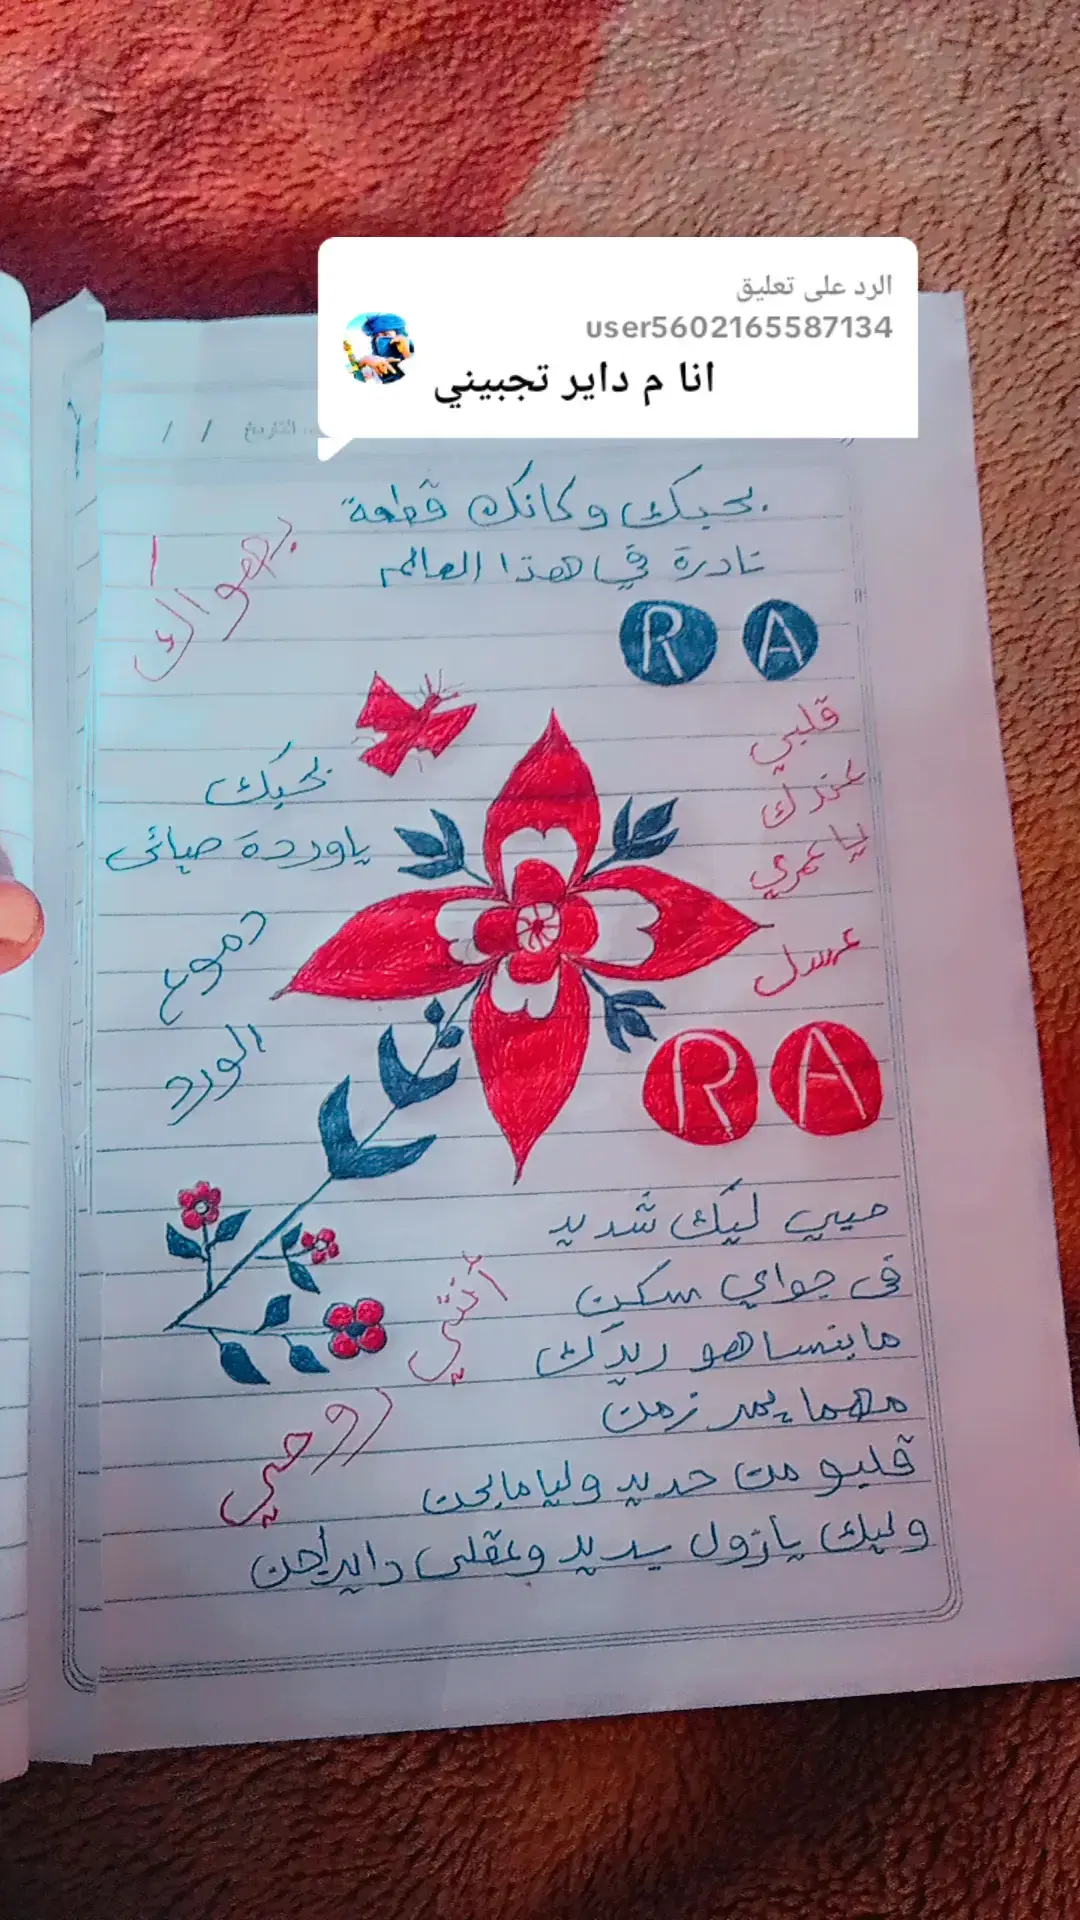 الرد على تعليق
user5602165587134
انا م داير تجبيني
التاريخ / /
بحبك وكانك قطعة
نادرة في هذا العالم
بهواك
R A
قلبي
عندك
يا عمري
عسل
بحبك
ياوردة حياتى
دموع
الورد
R A
حبي ليك شديد
فى جواي سكن
مابنساهو ريدك
مهما يمر زمن
أنتي
روحي
قلبو من حديد وليا مابحن
وليك يازول سديد وعقلى دايراجن